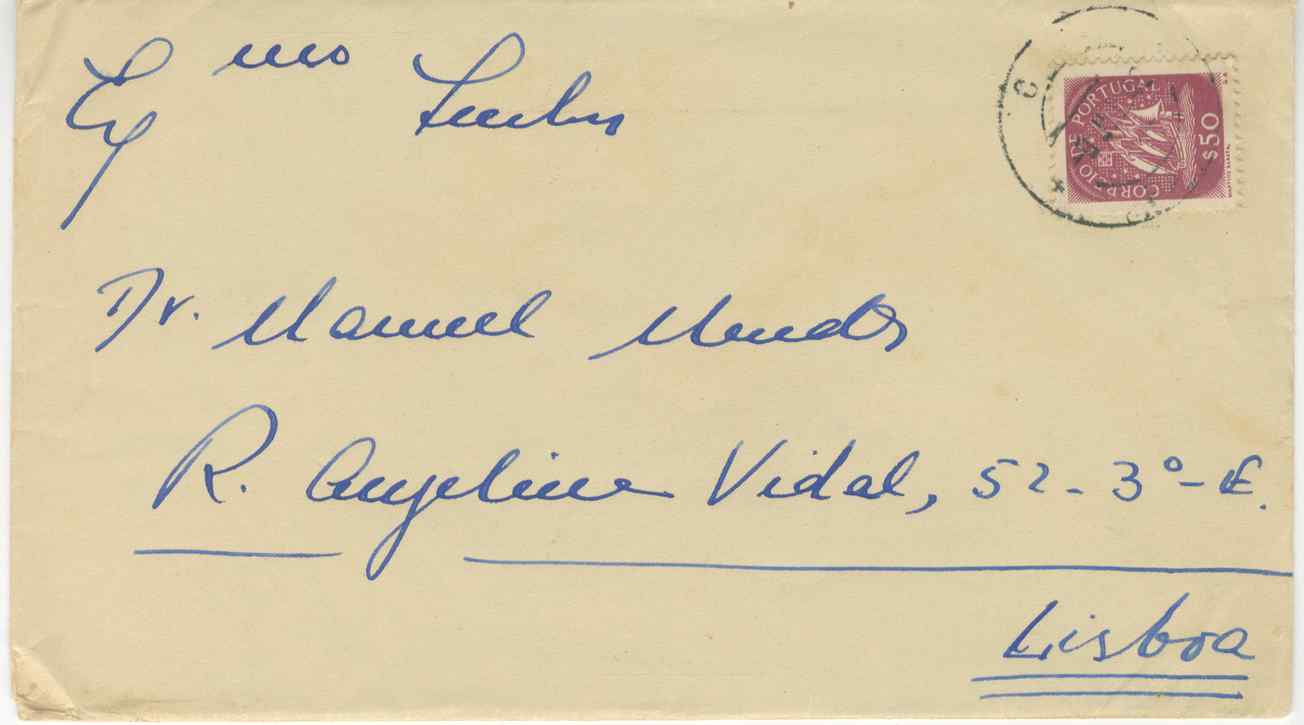 Exmo Senhor
Dr. Manuel Mendes
R. Angelina Vidal, 52-3º-E.
Lisboa
CORREIO DE PORTUGAL
$50